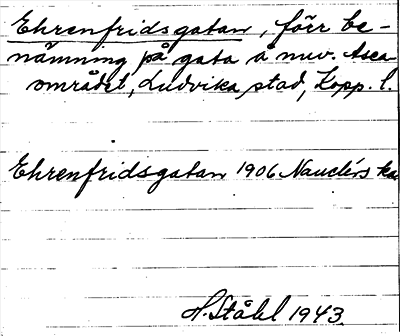 Ehrenfridsgatan, förr be-
nämning på gata å nuv. Asea
området, Ludvika stad, Kopp. l.
Ehrenfridsgatan 1906 Nauclérs ka
H. Ståhl 1943.